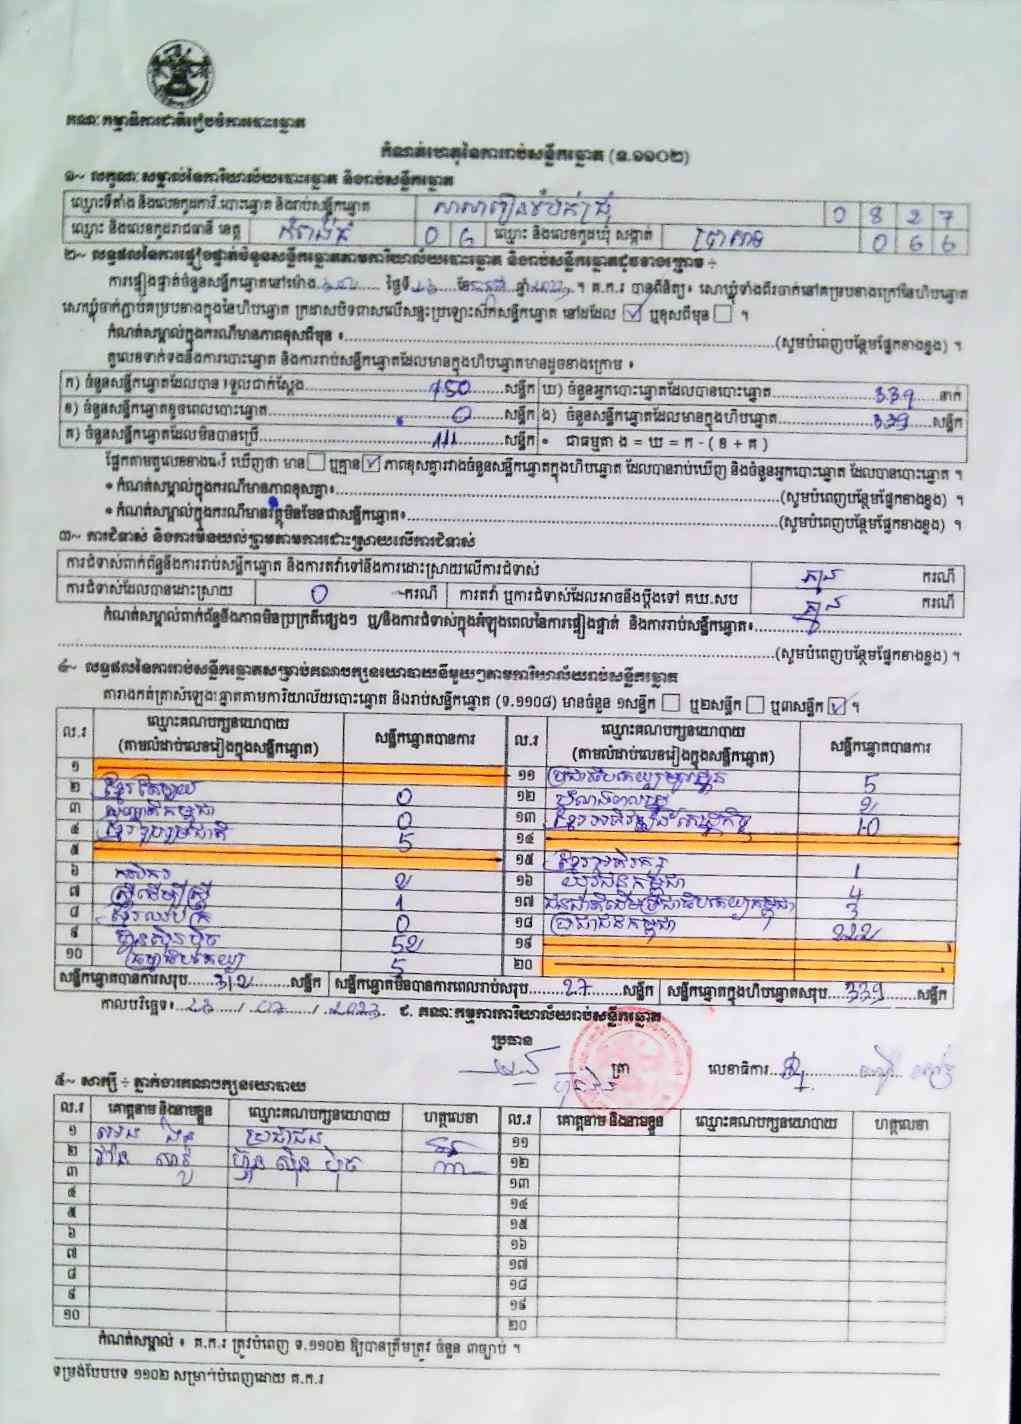 គណៈកម្មាធិការជាតិរៀបចំការបោះឆ្នោត
កំណត់ហេតុនៃការរាប់សន្លឹកឆ្នោត (ទ.១១០២)
១~ លក្ខណៈសម្គាល់នៃការិយាល័យបោះឆ្នោត និងរាប់សន្លឹកឆ្នោត
ឈ្មោះទីតាំង និងលេខកូដការិ.បោះឆ្នោត និងរាប់សន្លឹកឆ្នោត 0 8 2 7
ឈ្មោះ និងលេខកូដរាជធានី ខេត្ត កំពង់ធំ 0 6 ឈ្មោះ និងលេខកូដឃុំ សង្កាត់ 0 6 6
២~ លទ្ធផលនៃការផ្ទៀងផ្ទាត់ចំនួនសន្លឹកឆ្នោតតាមការិយាល័យបោះឆ្នោត និងរាប់សន្លឹកឆ្នោតដូចខាងក្រោម ÷
ការផ្ទៀងផ្ទាត់ចំនួនសន្លឹកឆ្នោតនៅម៉ោង ថ្ងៃទី ខែ ឆ្នាំ ។ គ.ក.រ បានពិនិត្យ៖ សោឃ្លុំទាំងពីរចាក់នៅគម្របខាងក្រៅនៃហិបឆ្នោត
សោឃ្លុំចាក់ភ្ជាប់គម្របខាងក្នុងនៃហិបឆ្នោត ក្រដាសបិទពាសលើសន្ទះប្រឡោះស៊កសន្លឹកឆ្នោត នៅដដែល ☑ ឬខុសពីមុន ☐ ។
កំណត់សម្គាល់ក្នុងករណីមានភាពខុសពីមុន ៖ (សូមបំពេញបន្ថែមផ្នែកខាងខ្នង) ។
តួលេខទាក់ទងនឹងការបោះឆ្នោត និងការរាប់សន្លឹកឆ្នោតដែលមានក្នុងហិបឆ្នោតមានដូចខាងក្រោម ៖
ក) ចំនួនសន្លឹកឆ្នោតដែលបានទទួលជាក់ស្តែង 450 សន្លឹក ឃ) ចំនួនអ្នកបោះឆ្នោតដែលបានបោះឆ្នោត 339 នាក់
ខ) ចំនួនសន្លឹកឆ្នោតខូចពេលបោះឆ្នោត 0 សន្លឹក ង) ចំនួនសន្លឹកឆ្នោតដែលមានក្នុងហិបឆ្នោត 339 សន្លឹក
គ) ចំនួនសន្លឹកឆ្នោតដែលមិនបានប្រើ 111 សន្លឹក • ជាធម្មតា ង = ឃ = ក - ( ខ + គ )
ផ្អែកតាមតួលេខខាងលើ ឃើញថា មាន ☐ ឬគ្មាន ☑ ភាពខុសគ្នារវាងចំនួនសន្លឹកឆ្នោតក្នុងហិបឆ្នោត ដែលបានរាប់ឃើញ និងចំនួនអ្នកបោះឆ្នោត ដែលបានបោះឆ្នោត ។
• កំណត់សម្គាល់ក្នុងករណីមានភាពខុសគ្នា៖ (សូមបំពេញបន្ថែមផ្នែកខាងខ្នង) ។
• កំណត់សម្គាល់ក្នុងករណីមានវត្ថុមិនមែនជាសន្លឹកឆ្នោត៖ (សូមបំពេញបន្ថែមផ្នែកខាងខ្នង) ។
៣~ ការជំទាស់ និងការមិនយល់ព្រមតាមការដោះស្រាយលើការជំទាស់
ការជំទាស់ពាក់ព័ន្ធនឹងការរាប់សន្លឹកឆ្នោត និងការតវ៉ាទៅនឹងការដោះស្រាយលើការជំទាស់ គ្មាន ករណី
ការជំទាស់ដែលបានដោះស្រាយ 0 ករណី ការតវ៉ា ឬការជំទាស់ដែលអាចនឹងប្តឹងទៅ គឃ.សប គ្មាន ករណី
កំណត់សម្គាល់ពាក់ព័ន្ធនឹងភាពមិនប្រក្រតីផ្សេងៗ ឬ/និងការជំទាស់ក្នុងអំឡុងពេលនៃការផ្ទៀងផ្ទាត់ និងការរាប់សន្លឹកឆ្នោត៖
(សូមបំពេញបន្ថែមផ្នែកខាងខ្នង) ។
៤~ លទ្ធផលនៃការរាប់សន្លឹកឆ្នោតសម្រាប់គណបក្សនយោបាយនីមួយៗតាមការិយាល័យរាប់សន្លឹកឆ្នោត
តារាងកត់ត្រាសំឡេងឆ្នោតតាមការិយាល័យបោះឆ្នោត និងរាប់សន្លឹកឆ្នោត (ទ.១១០៨) មានចំនួន ១សន្លឹក ☐ ឬ២សន្លឹក ☐ ឬ៣សន្លឹក ☑ ។
ល.រ ឈ្មោះគណបក្សនយោបាយ (តាមលំដាប់លេខរៀងក្នុងសន្លឹកឆ្នោត) សន្លឹកឆ្នោតបានការ ល.រ ឈ្មោះគណបក្សនយោបាយ (តាមលំដាប់លេខរៀងក្នុងសន្លឹកឆ្នោត) សន្លឹកឆ្នោតបានការ
១ ១១ ប្រជាធិបតេយ្យមូលដ្ឋាន 5
២ ខ្មែរតែមួយ 0 ១២ 2
៣ សញ្ជាតិកម្ពុជា 0 ១៣ ខ្មែរអភិវឌ្ឍន៍សេដ្ឋកិច្ច 10
៤ ខ្មែររួបរួមជាតិ 5 ១៤
៥ ១៥ ខ្មែរអភិរក្ស 1
៦ កសិករ 2 ១៦ យុវជនកម្ពុជា 4
៧ ស្ត្រីដើម្បីស្ត្រី 1 ១៧ ជនជាតិដើមប្រជាធិបតេយ្យកម្ពុជា 3
៨ 0 ១៨ ប្រជាជនកម្ពុជា 222
៩ ហ្វ៊ុនស៊ិនប៉ិច 52 ១៩
១០ ធម្មាធិបតេយ្យ 5 ២០
សន្លឹកឆ្នោតបានការសរុប 312 សន្លឹក សន្លឹកឆ្នោតមិនបានការពេលរាប់សរុប 27 សន្លឹក សន្លឹកឆ្នោតក្នុងហិបឆ្នោតសរុប 339 សន្លឹក
កាលបរិច្ឆេទ៖ 23 / 07 / 2023 ជ. គណៈកម្មការការិយាល័យរាប់សន្លឹកឆ្នោត
ប្រធាន
ត្រា លេខាធិការ
៥~ សាក្សី ÷ ភ្នាក់ងារគណបក្សនយោបាយ
ល.រ គោត្តនាម និងនាមខ្លួន ឈ្មោះគណបក្សនយោបាយ ហត្ថលេខា ល.រ គោត្តនាម និងនាមខ្លួន ឈ្មោះគណបក្សនយោបាយ ហត្ថលេខា
១ ប្រជាជន ១១
២ ហ្វ៊ុន ស៊ិន ប៉ិច ១២
៣ ១៣
៤ ១៤
៥ ១៥
៦ ១៦
៧ ១៧
៨ ១៨
៩ ១៩
១០ ២០
កំណត់សម្គាល់ ៖ គ.ក.រ ត្រូវបំពេញ ទ.១១០២ ឱ្យបានត្រឹមត្រូវ ចំនួន ៣ច្បាប់ ។
ទម្រង់បែបបទ ១១០២ សម្រាប់បំពេញដោយ គ.ក.រ